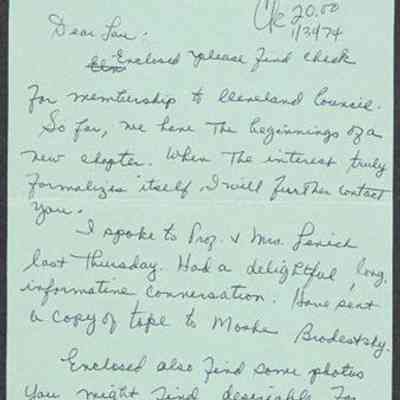 Ck 20.00
1/3/74
Dear Lou.
Enclosed please find check
for membership to Cleveland Council.
So far, we have the beginnings of a
new chapter. When the interest truly
formalizes itself, I will further contact
you.
I spoke to Prof. & Mrs.
last Thursday. Had a delightful, long,
informative conversation. Have sent
a copy of tape to Moshe Brodestsky.
Enclosed also find some photos
you might find desirable for